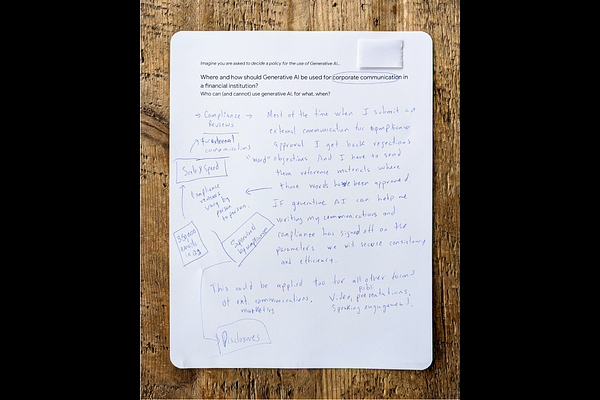 Imagine you are asked to decide a policy for the use of Generative AI...
Where and how should Generative AI be used for corporate communication in
a financial institution?
Who can (and cannot) use generative AI, for what, when?
→ Compliance →
Reviews
for external
communications
Scale & Speed
Compliance
reviews
vary by
person
to person.
Supervised
by compliance
Most of the time when I submit an
external communication for compliance
approval I get back rejections
"word" objections And I have to send
them reference materials where
those words have been approved
IF generative AI can help me
writing my communications and
compliance has signed off on the
parameters we will secure consistency
and efficiency.
This could be applied too for all other forms
of ext. communications, pubs
marketing Video, presentations,
Speaking engagement.
Disclosures